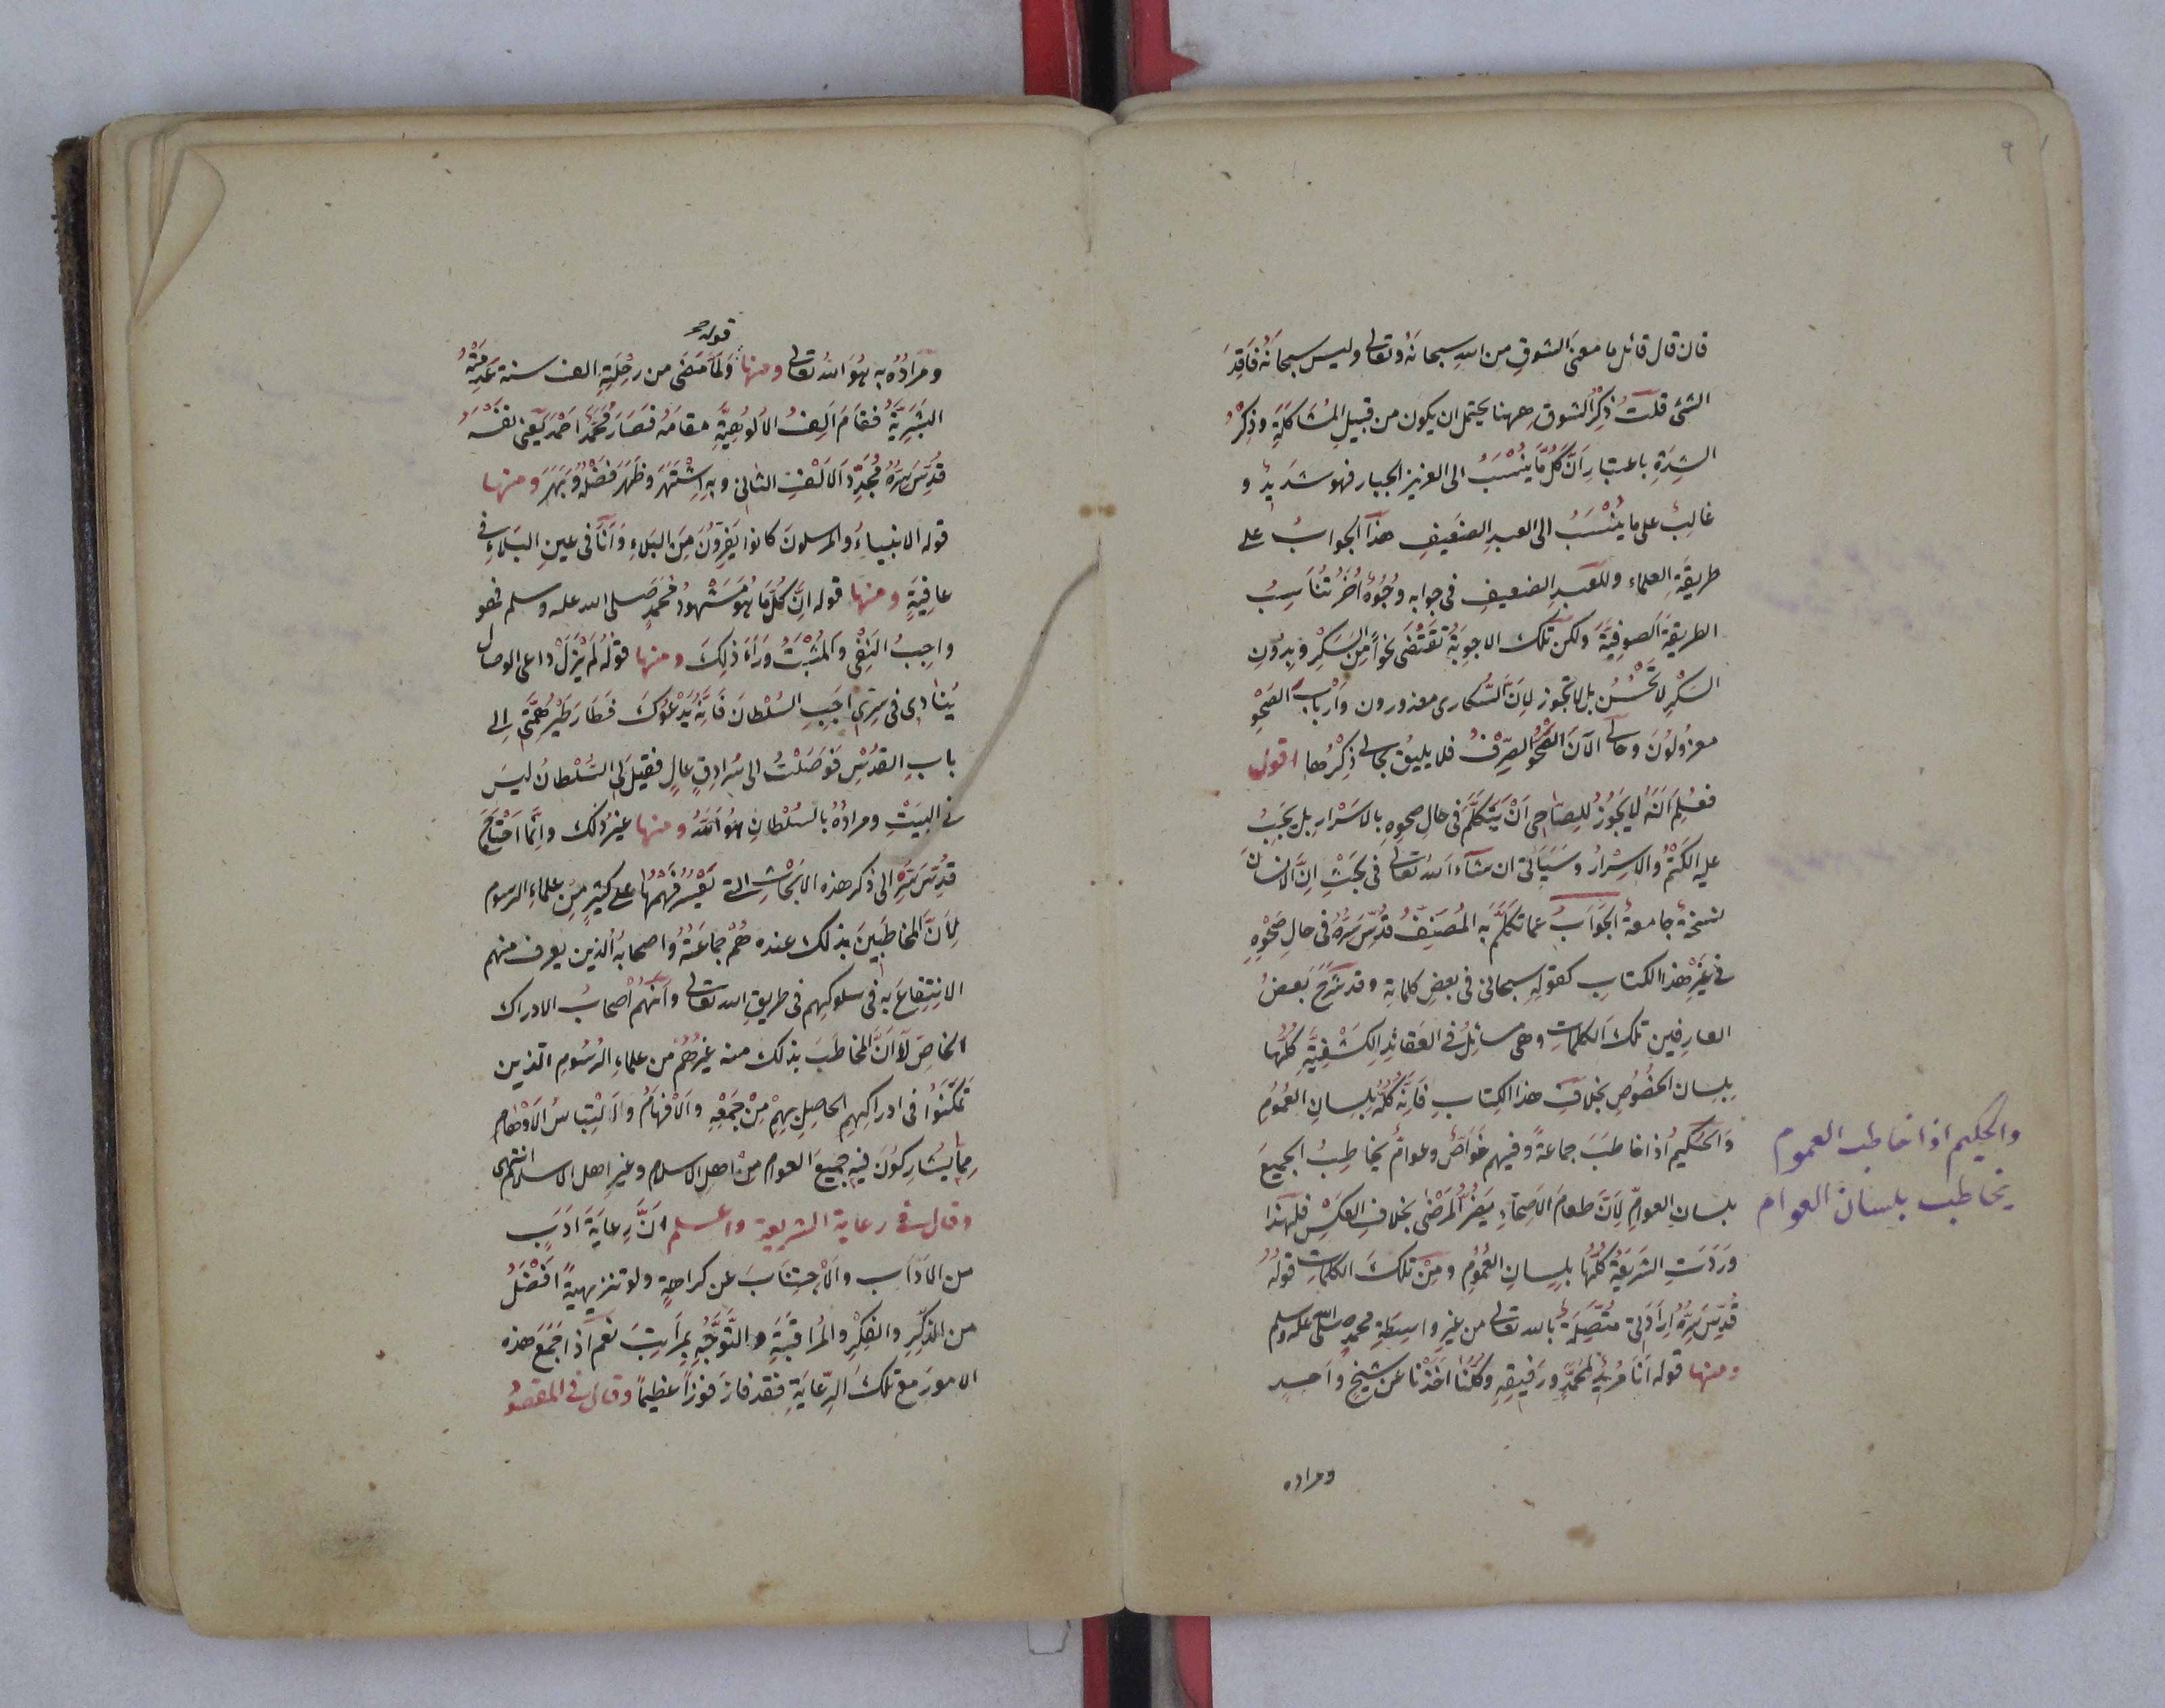 ٩
فان قال قائل ما معنى الشوق من الله سبحانه وتعالى وليس سبحانه فاقد
الشئ قلت ذكر الشوق ههنا يحتمل ان يكون من قبيل المشاكلة وذكر
الشدة باعتبار ان كل ما ينسب الى العزيز الجبار فهو شديد و
غالب على ما ينسب الى العبد الضعيف هذا الجواب على
طريقة العلماء وللعبد الضعيف فى جوابه وجوه اخر تناسب
الطريقة الصوفية ولكن تلك الاجوبة تقتضى نحوا من السكر وبدون
السكر لا تحسن بل لا تجوز لان السكارى معذورون وارباب الصحو
معزولون وحالى الآن الصحو الصرف فلا يليق بحالى ذكرها اقول
فعلم انه لا يجوز للصاحى ان يتكلم فى حال صحوه بالاسرار بل يجب
عليه الكتم والاسرار وسيأتى ان شاء الله تعالى فى بحث ان الانسان
نسخة جامعة الجواب عما تكلم به المصنف قدس سره فى حال صحوه
فى غير هذا الكتاب كقوله سبحانى فى بعض كلماته وقد شرح بعض
العارفين تلك الكلمات وهى مسائل فى العقائد الكشفية كلها
بلسان الخصوص بخلاف هذا الكتاب فانه كله بلسان العموم
والحكيم اذا خاطب جماعة وفيهم خواص وعوام يخاطب الجميع
بلسان العوام لان طعام الاصحاء يضر المرضى بخلاف العكس فلهذا
وردت الشريعة كلها بلسان العموم ومن تلك الكلمات قوله
قدس سره ارادتى متصلة بالله تعالى من غير واسطة محمد صلى الله عليه وسلم
ومنها قوله انا مريد لمحمد ورفيقه وكلنا اخذنا عن شيخ واحد
ومراده
والحكيم اذا خاطب العموم
يخاطب بلسان العوام
قوله صح
ومراده به هو الله تعالى ومنها ولما مضى من رحلته الف سنة عدمته
البشرية فقام الف الالوهية مقامه فصار محمد احمد يعنى نفسه
قدس سره مجدد الالف الثانى وبه اشتهر وظهر فضله وبهر ومنها
قوله الانبياء والمرسلون كانوا يفرون من البلاء وانا فى عين البلاء فى
عافية ومنها قوله ان كل ما هو مشهود محمد صلى الله عليه وسلم فهو
واجب النفى والمثبت وراء ذلك ومنها قوله لم يزل داعى الوصال
ينادى فى سرى اجب السلطان فانه يدعوك فطار طير همتى الى
باب القدس فوصلت الى سرادق عال فقيل لى السلطان ليس
فى البيت ومراده بالسلطان هو الله ومنها غير ذلك وانما احتاج
قدس سره الى ذكر هذه الابحاث التى يعسر فهمها على كثير من علماء الرسوم
لان المخاطبين بذلك عنده هم جماعته واصحابه الذين يعرف منهم
الانتفاع به فى سلوكهم فى طريق الله تعالى وانهم اصحاب الادراك
الخاص لا ان المخاطب بذلك منه غيرهم من علماء الرسوم الذين
تمكنوا فى ادراكهم الحاصل بهم من جمعه والافهام والالتباس الاوهام
مما يشاركون فيه جميع العوام من اهل الاسلام وغير اهل الاسلام انتهى
وقال فى رعاية الشريعة واعلم ان رعاية ادب
من الاداب والاجتناب عن كراهة ولو تنزيهية افضل
من الذكر والفكر والمراقبة والتوجه بمراتب نعم اذ اجمع هذه
الامور مع تلك الرعاية فقد فاز فوزا عظيما وقال فى المقصو